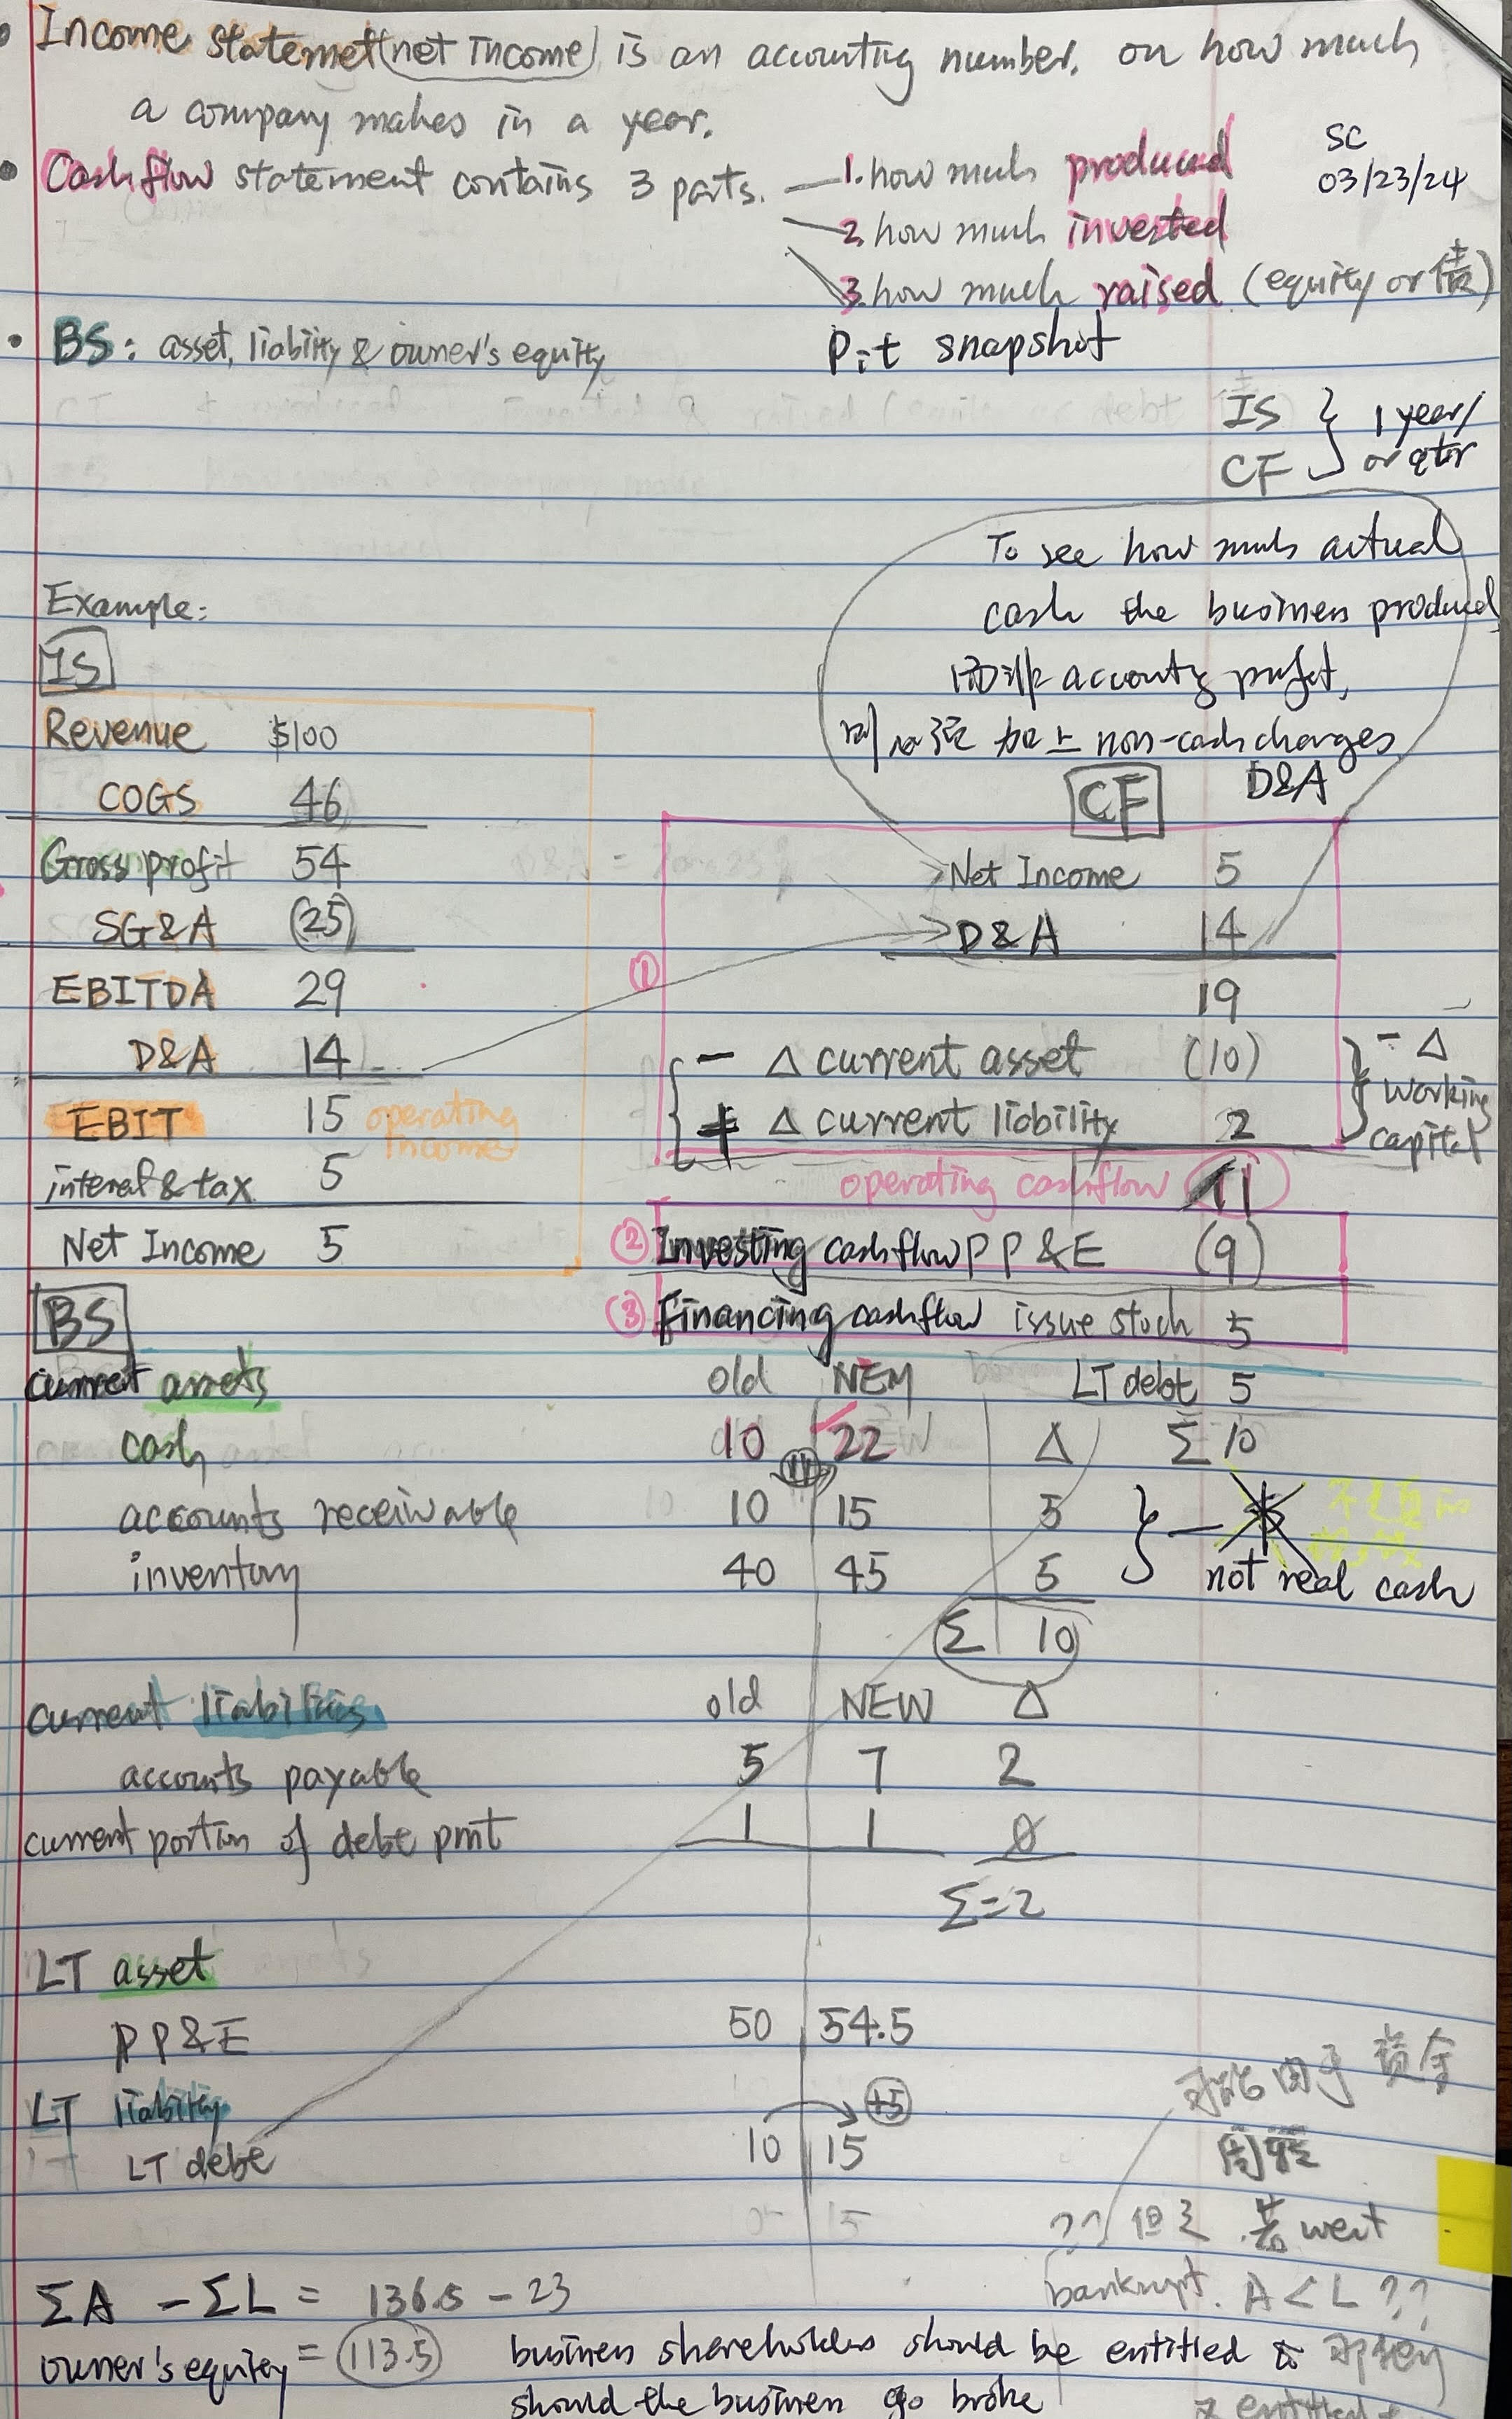 Income statemet (net income) is an accounting number. on how much
a company makes in a year.
SC
03/23/24
Cashflow statement contains 3 parts.
1. how much produced
2. how much invested
3. how much raised (equity or 债)
BS: asset, liability & owner's equity
P.i.t snapshot
IS
CF
1 year/
or qtr
To see how much actual
cash the business produced,
而非 accounting profit,
加上 non-cash charges
D&A
Example:
IS
Revenue $100
COGS 46
Gross profit 54
SG&A (25)
EBITDA 29
D&A 14
EBIT 15 operating
income
interest & tax 5
Net Income 5
CF
Net Income 5
D&A 14
19
① 
- Δ current asset (10)
+ Δ current liability 2
- Δ
working
capital
operating cashflow 11
② Investing cashflow PP&E (9)
③ Financing cashflow issue stock 5
LT debt 5
Σ 10
BS
current assets old NEW
cash 10 22 Δ
11
accounts receivable 10 15 5
inventory 40 45 5
not real cash
Σ 10
current liabilities old NEW Δ
accounts payable 5 7 2
current portion of debt pmt 1 1 0
Σ=2
LT asset
PP&E 50 54.5
LT liability +5
LT debt 10 15
可能由于 资金
周转
?? 但是 若 went
bankrupt. A < L ??
ΣA - ΣL = 136.5 - 23
owner's equity = 113.5 business shareholders should be entitled to
should the business go broke